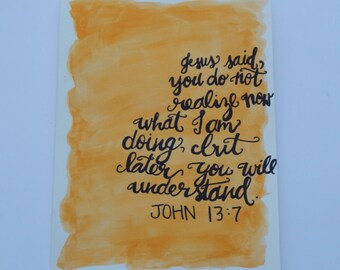 Jesus said,
you do not
realize now
what I am
doing, but
later you will
understand.
JOHN 13:7